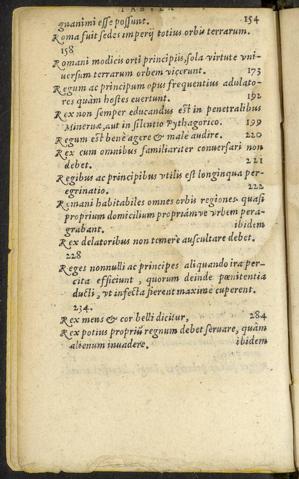 TABVLA
gnanimi esse possunt. 154
Roma fuit sedes imperij totius orbis terrarum.
158
Romani modicis orti principiis, sola virtute vni-
uersum terrarum orbem vicerunt. 173
Regum ac principum opus frequentius adulato-
res quàm hostes euertunt. 192
Rex non semper educandus est in penetralibus
Mineruæ, aut in silentio Pythagorico. 199
Regum est bene agere & male audire. 220
Rex cum omnibus familiariter conuersari non
debet. 221
Regibus ac principibus vtilis est longinqua per-
egrinatio. 222
Romani habitabiles omnes orbis regiones quasi
proprium domicilium propriámve vrbem pera-
grabant. ibidem
Rex delatoribus non temerè auscultare debet.
228
Reges nonnulli ac principes aliquando ira per-
cita efficiunt, quorum deinde pœnitentia
ducti, vt infecta fierent maximè cuperent.
234.
Rex mens & cor belli dicitur, 284
Rex potius propriũ regnum debet seruare, quàm
alienum inuadere. ibidem